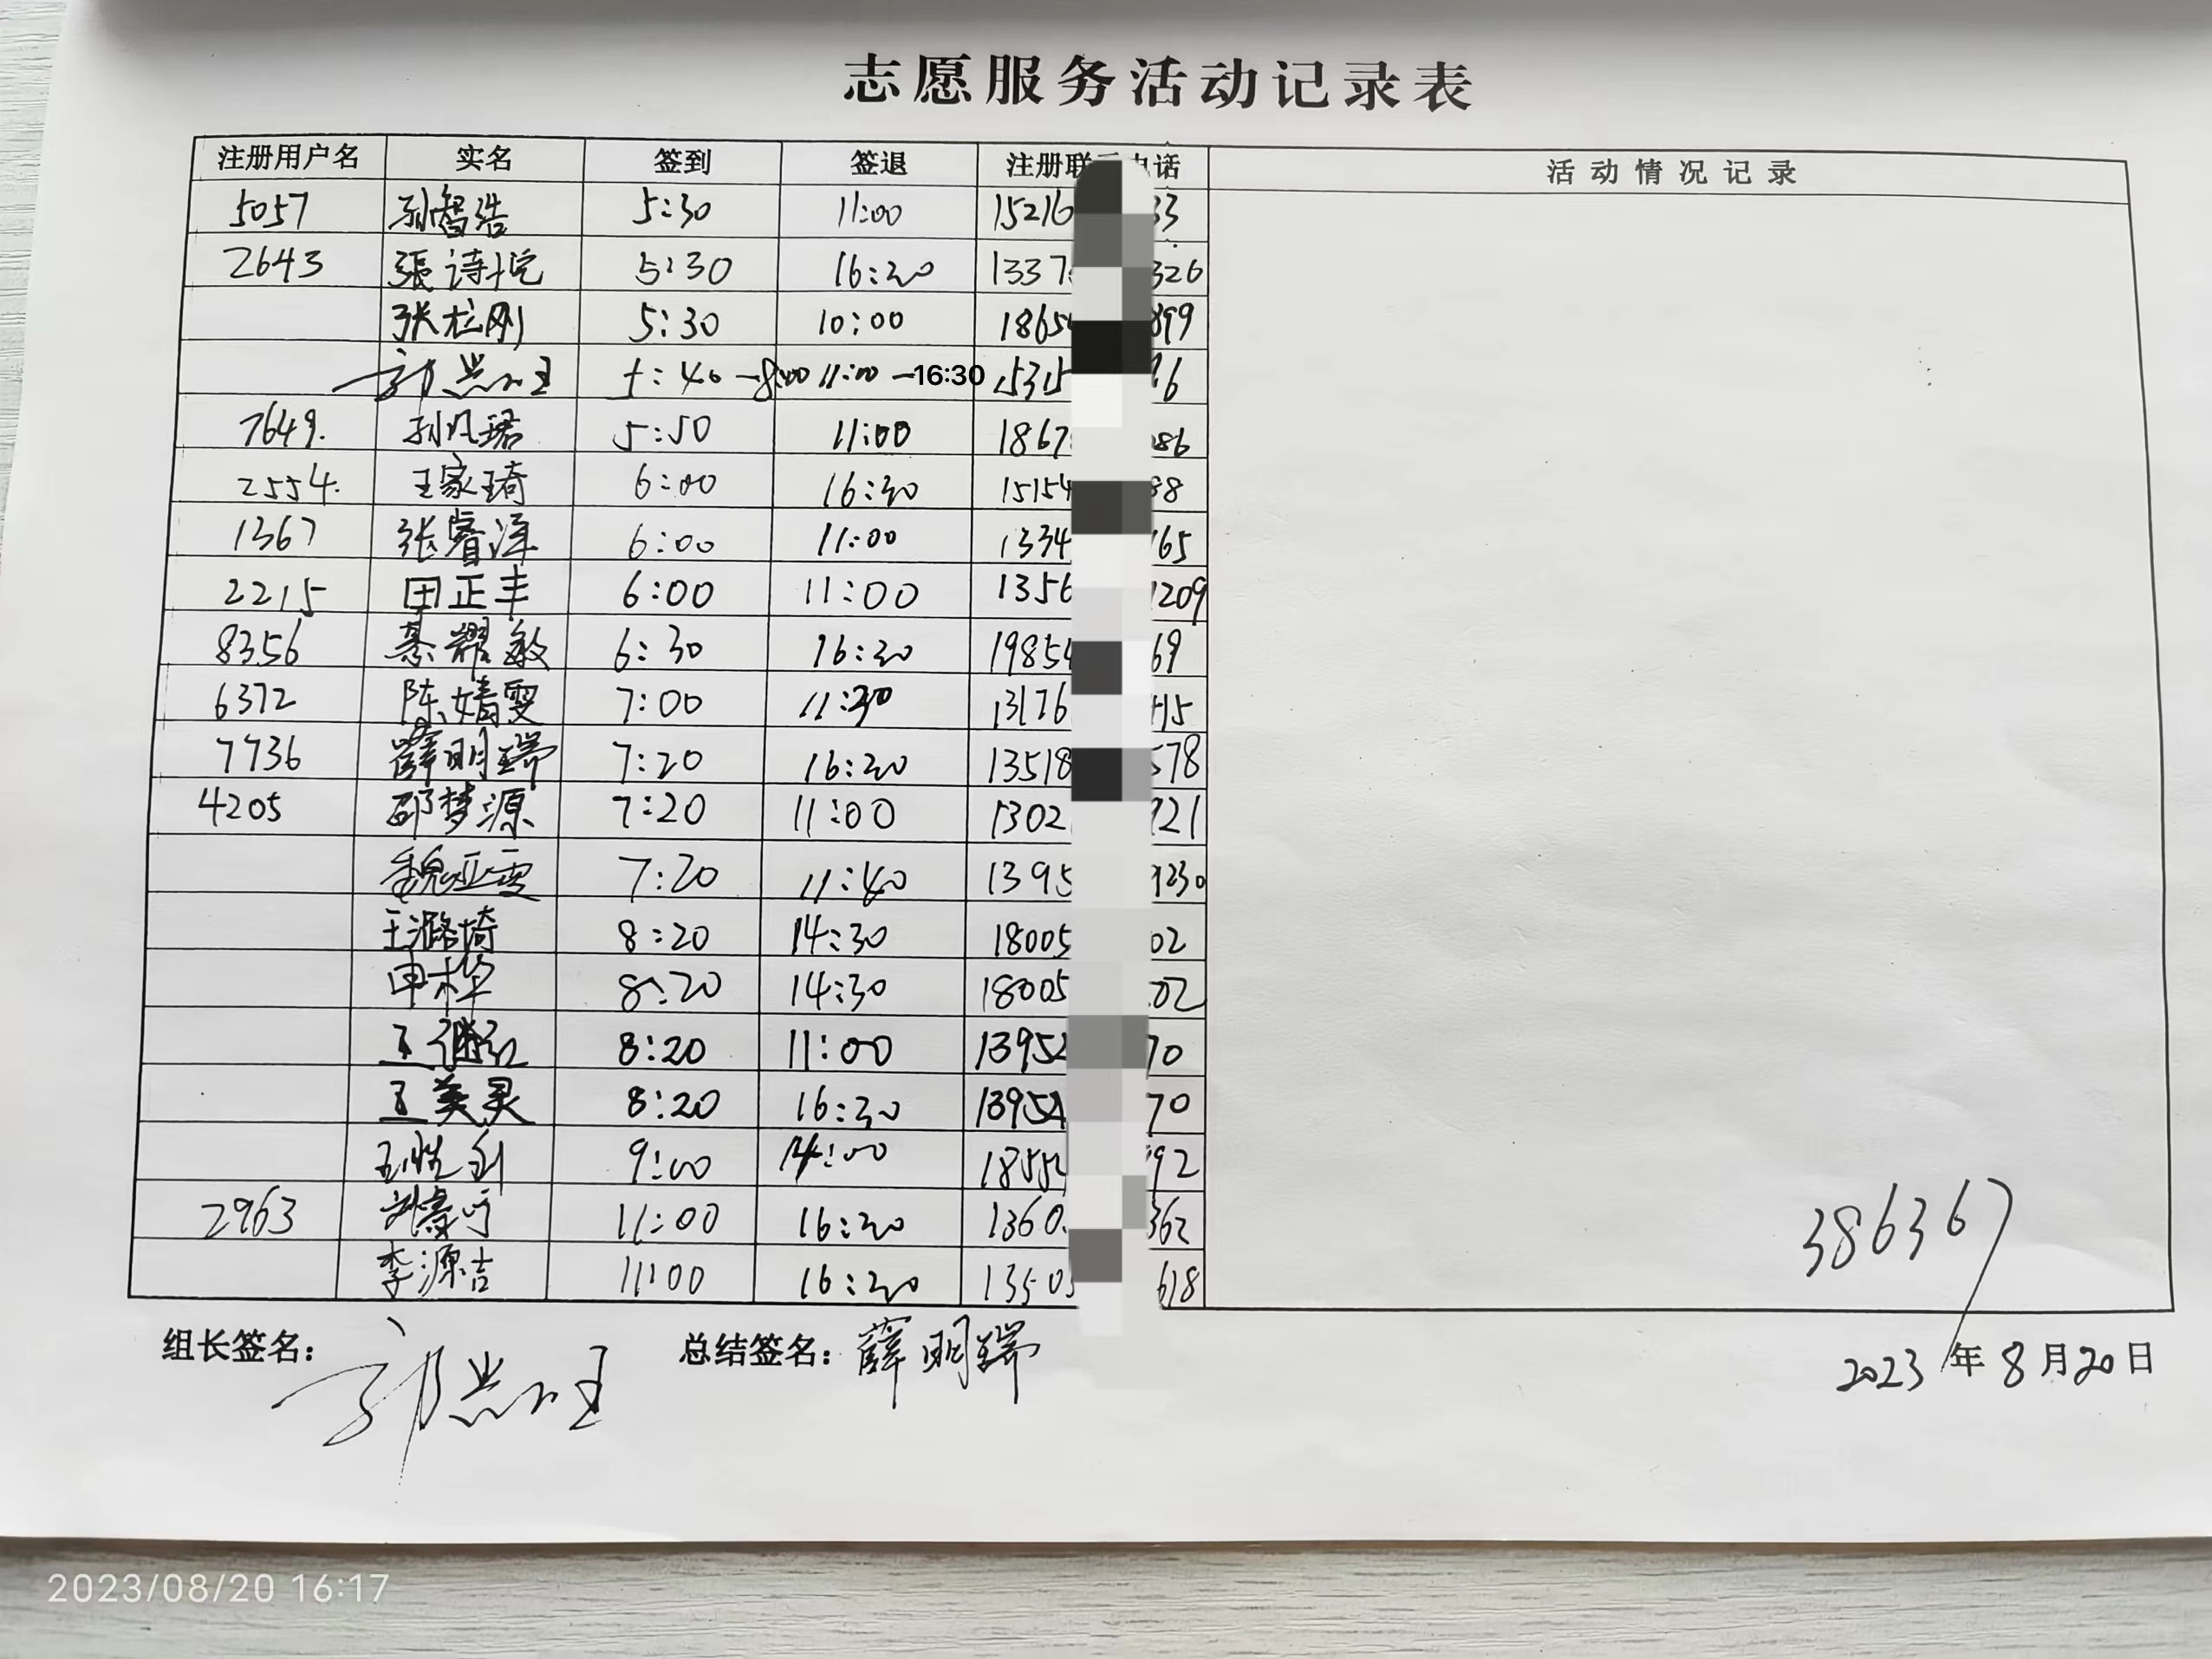 志愿服务活动记录表
注册用户名 实名 签到 签退 注册联 电话 活动情况记录
5057 孙智浩 5:30 11:00 15216 33
2643 張诗悦 5:30 16:20 1337 326
张 刚 5:30 10:00 1865 899
5:40 -8:00 11:00 -16:30 15315 16
7649. 孙凡珺 5:50 11:00 1867 086
2554. 王家琦 6:00 16:30 15154 88
1367 张睿泽 6:00 11:00 1334 165
2215 田正丰 6:00 11:00 1356 1209
8356 綦耀敏 6:30 16:20 1985 69
6372 陈婧雯 7:00 11:30 13176 415
7736 薛明瑞 7:20 16:20 13518 578
4205 邵梦源 7:20 11:00 1302 921
魏亚雯 7:20 11:40 1395 9230
王潞埼 8:20 14:30 18005 02
申桦 8:20 14:30 18005 02
王继红 8:20 11:00 1395 70
王美灵 8:20 16:30 13954 70
9:00 14:00 1855 92
2963 刘 11:00 16:20 1360 362
李源吉 11:00 16:20 13505 618
386367
组长签名： 总结签名：薛明瑞 2023年8月20日
2023/08/20 16:17